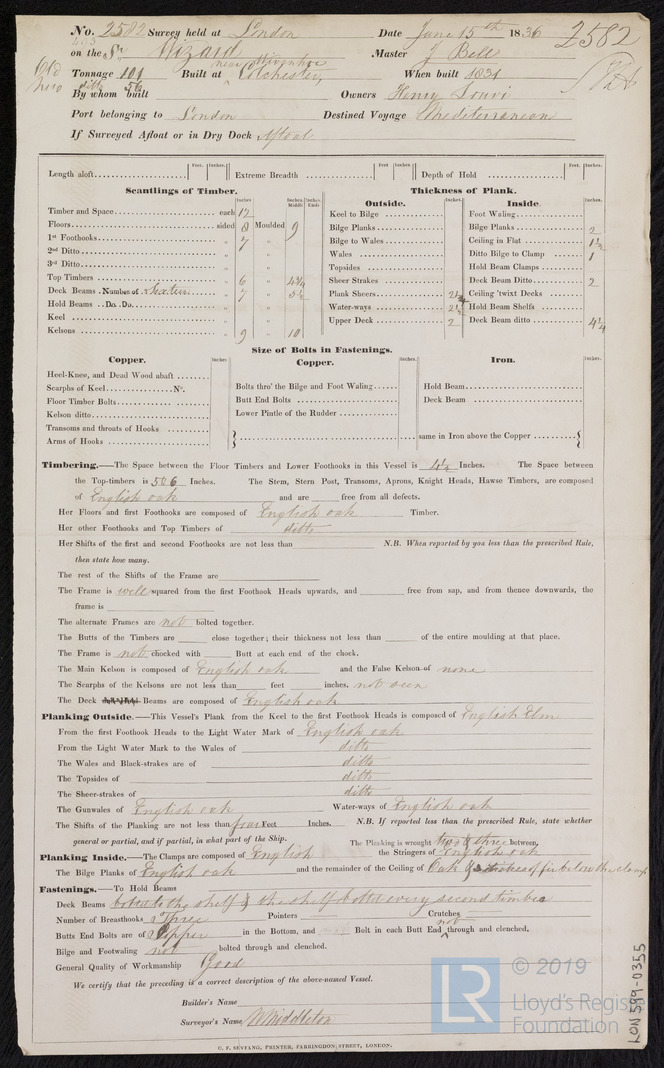 No. 2582 Survey held at London Date June 15th 1836 2582
on the Sr Wizard Master J Bell
near Wivenhoe
Old Tonnage 101 Built at Colchester, When built 1831
New ditto 56
By whom built Owners Henry
Port belonging to London Destined Voyage Mediterranean
If Surveyed Afloat or in Dry Dock Afloat
Feet. Inches. Feet Inches. Feet. Inches.
Length aloft Extreme Breadth Depth of Hold
Scantlings of Timber.
Inches Inches. Middle Inches Ends
Timber and Space each 12
Floors sided 8 Moulded 9
1st Foothooks " 7 "
2nd Ditto " "
3rd Ditto " "
Top Timbers " 6 " 4 3/4
Deck Beams . Number of Sixteen " 7 " 5 1/2
Hold Beams ..Do..Do. " "
Keel " "
Kelsons " 9 " 10
Thickness of Plank.
Outside. Inches.
Keel to Bilge
Bilge Planks
Bilge to Wales
Wales
Topsides
Sheer Strakes
Plank Sheers 2 1/4
Water-ways 2 1/2
Upper Deck 2
Inside. Inches.
Foot Waling
Bilge Planks 2
Ceiling in Flat 1 1/2
Ditto Bilge to Clamp 1
Hold Beam Clamps
Deck Beam Ditto 2
Ceiling 'twixt Decks
Hold Beam Shelfs
Deck Beam ditto 4 1/4
Size of Bolts in Fastenings.
Copper. Inches
Heel-Knee, and Dead Wood abaft
Scarphs of Keel No.
Floor Timber Bolts
Kelson ditto
Transoms and throats of Hooks
Arms of Hooks
Copper. Inches.
Bolts thro' the Bilge and Foot Waling
Butt End Bolts
Lower Pintle of the Rudder
Iron. Inches.
Hold Beam
Deck Beam
same in Iron above the Copper
Timbering.—The Space between the Floor Timbers and Lower Foothooks in this Vessel is 4 1/2 Inches. The Space between
the Top-timbers is 5 & 6 Inches. The Stem, Stern Post, Transoms, Aprons, Knight Heads, Hawse Timbers, are composed
of English oak and are free from all defects.
Her Floors and first Foothooks are composed of English oak Timber.
Her other Foothooks and Top Timbers of ditto
Her Shifts of the first and second Foothooks are not less than N.B. When reported by you less than the prescribed Rule,
then state how many.
The rest of the Shifts of the Frame are
The Frame is well squared from the first Foothook Heads upwards, and free from sap, and from thence downwards, the
frame is
The alternate Frames are not bolted together.
The Butts of the Timbers are close together; their thickness not less than of the entire moulding at that place.
The Frame is not chocked with Butt at each end of the chock.
The Main Kelson is composed of English oak and the False Kelson of none
The Scarphs of the Kelsons are not less than feet inches. not seen
The Deck Beams are composed of English oak
Planking Outside.—This Vessel's Plank from the Keel to the first Foothook Heads is composed of English Elm
From the first Foothook Heads to the Light Water Mark of English oak
From the Light Water Mark to the Wales of ditto
The Wales and Black-strakes are of ditto
The Topsides of ditto
The Sheer-strakes of ditto
The Gunwales of English oak Water-ways of English oak
The Shifts of the Planking are not less than four Feet Inches. N.B. If reported less than the prescribed Rule, state whether
general or partial, and if partial, in what part of the Ship. The Planking is wrought two & three between,
Planking Inside.—The Clamps are composed of English the Stringers of English oak
The Bilge Planks of English oak and the remainder of the Ceiling of Oak & strakes of fir below the clamp
Fastenings.—To Hold Beams
Deck Beams bolted to the shelf & the shelf bolted every second timber
Number of Breasthooks Three Pointers Crutches
Butts End Bolts are of Copper in the Bottom, and Bolt in each Butt End not through and clenched.
Bilge and Footwaling not bolted through and clenched.
General Quality of Workmanship Good
We certify that the preceding is a correct description of the above-named Vessel.
Builder's Name
Surveyor's Name W Middleton
C. F. SEYFANG, PRINTER, FARRINGDON STREET, LONDON.
LON 599-0355
LR © 2019
Lloyd's Register
Foundation